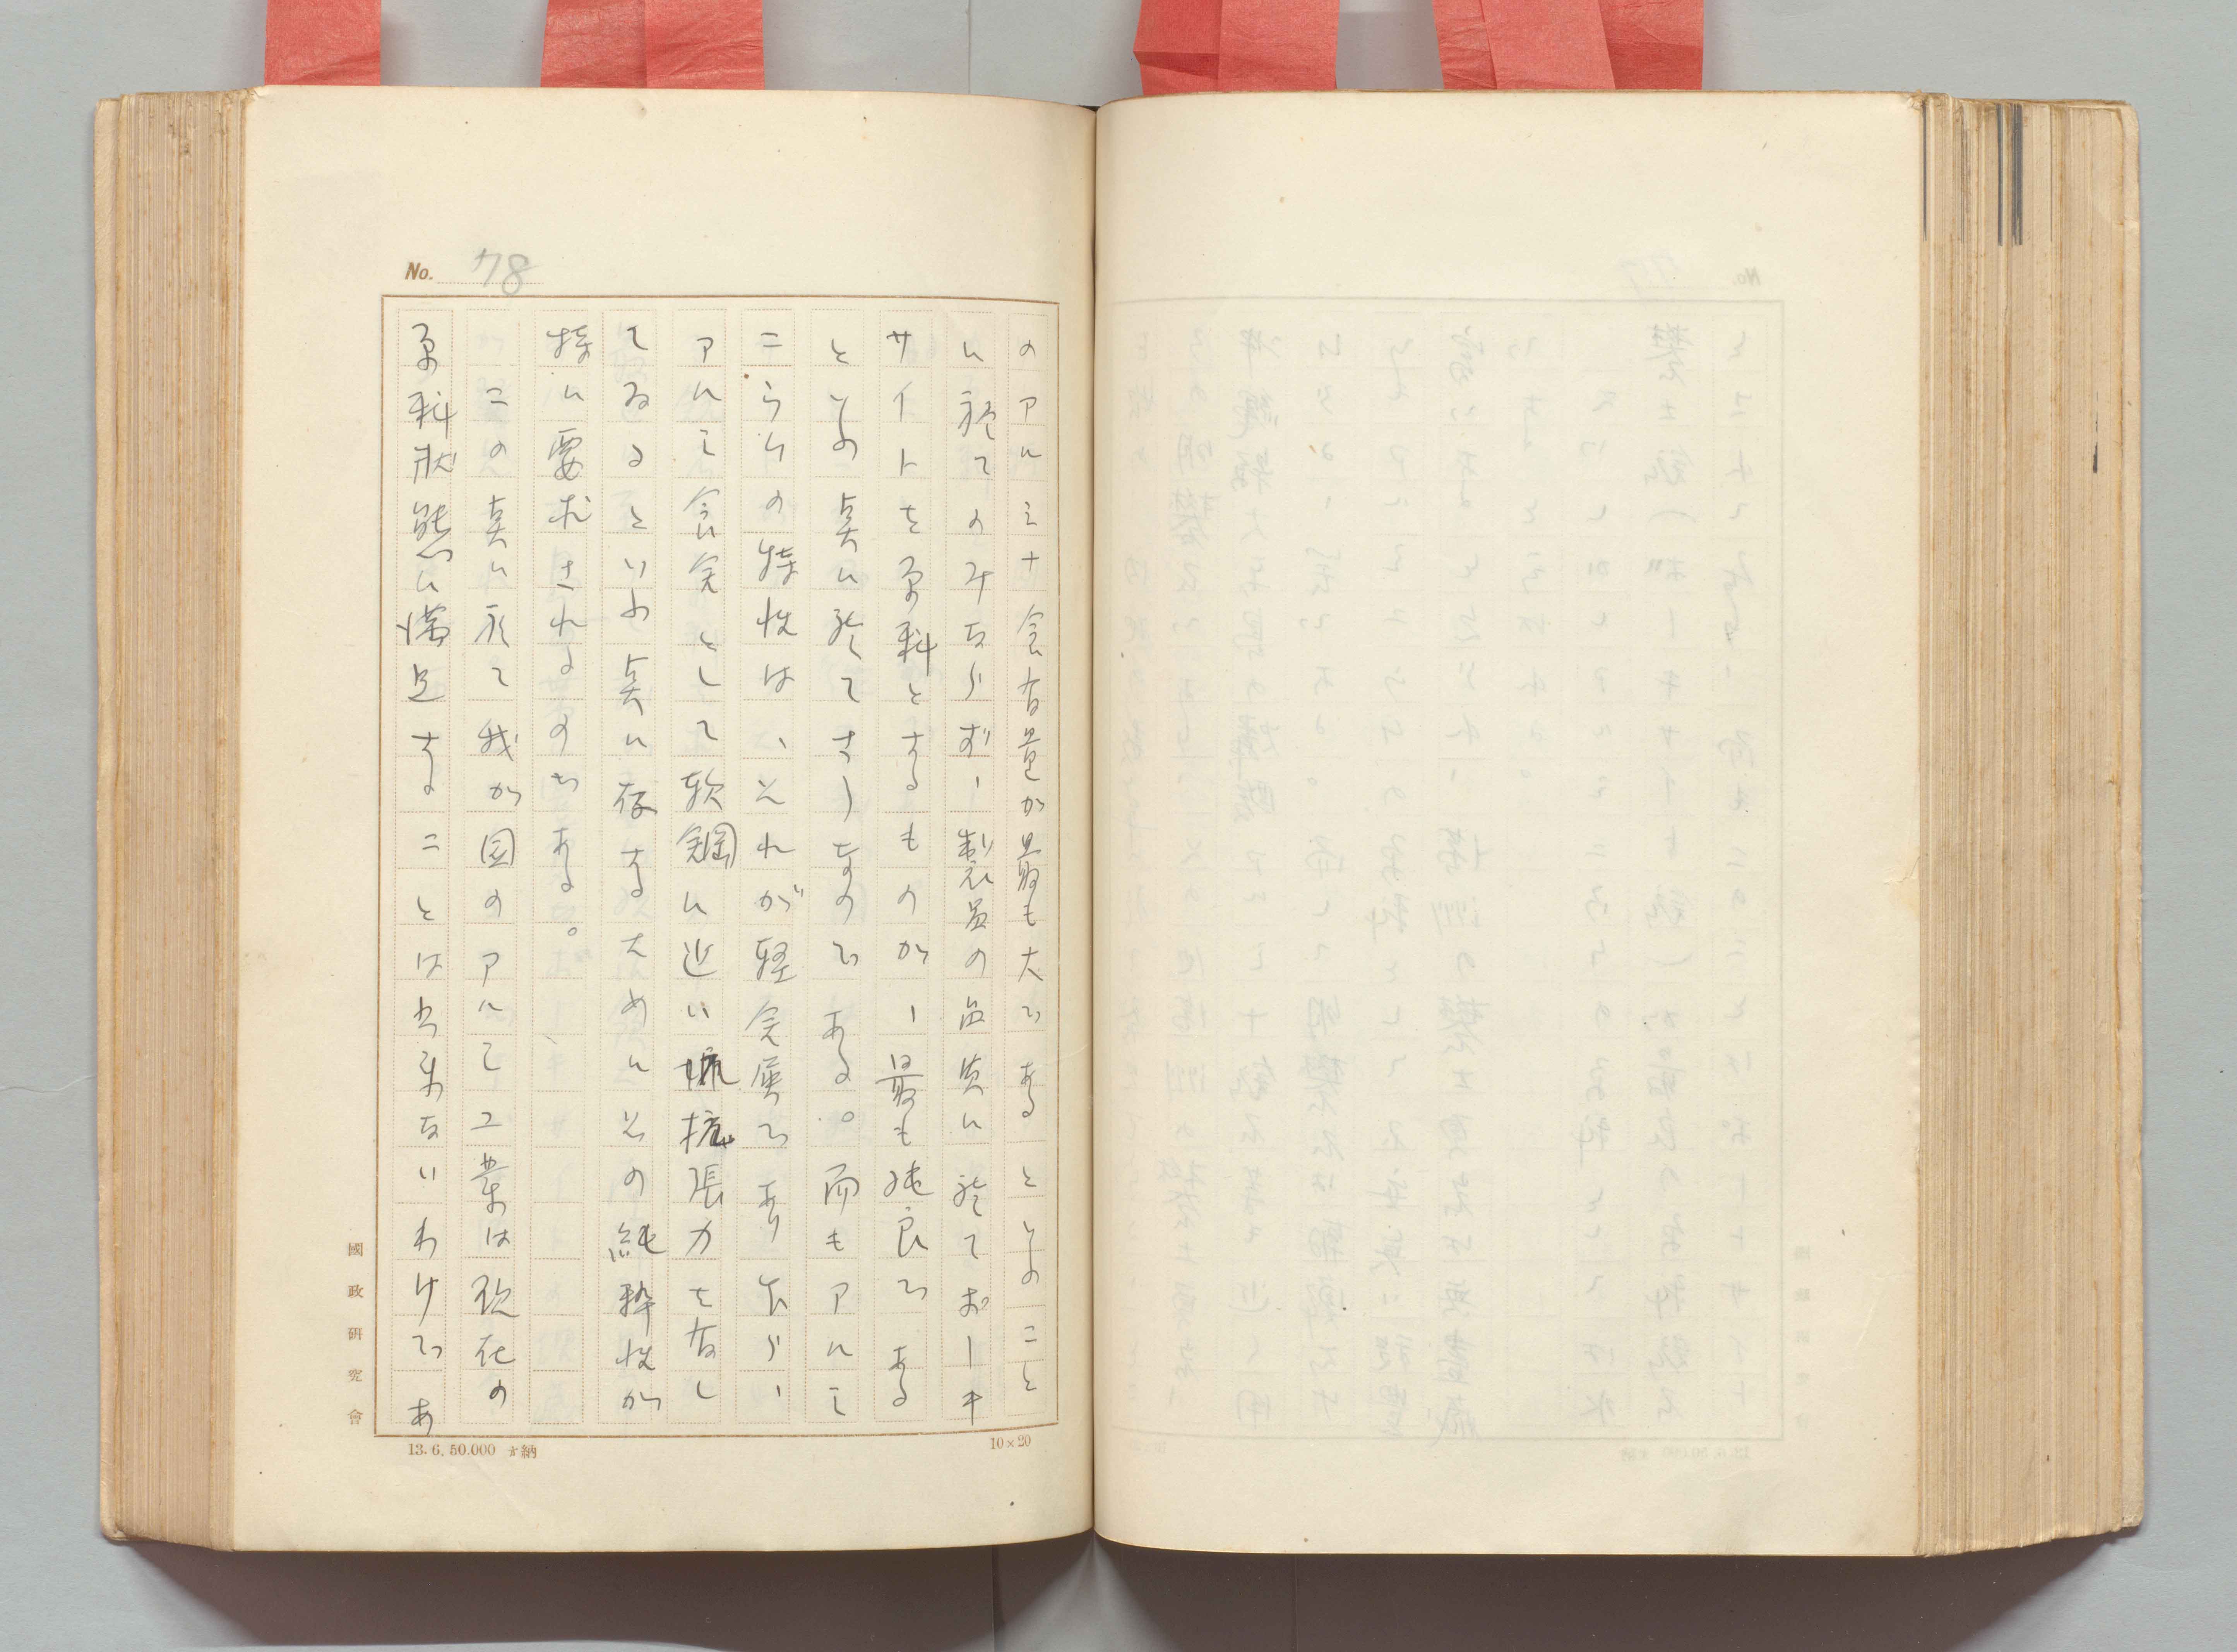 No. 78
のアルミナ含有量が最も大である といふこと
に於てのみならず、製品の品質に於てボーキ
サイトを原料とするものが、最も純良である
といふ点に於てさうなのである。而もアルミ
ニウムの特性は、それが軽金属であり乍ら、
アルミ合金として軟鋼に近い抗張力を有し
てゐるといふ点に存するために其の純粋性が
特に要求されるのである。
この点に於て我が国のアルミ工業は現在の
原料状態に満足することは出来ないわけであ
國政研究會
13.6.50.000 納
10×20